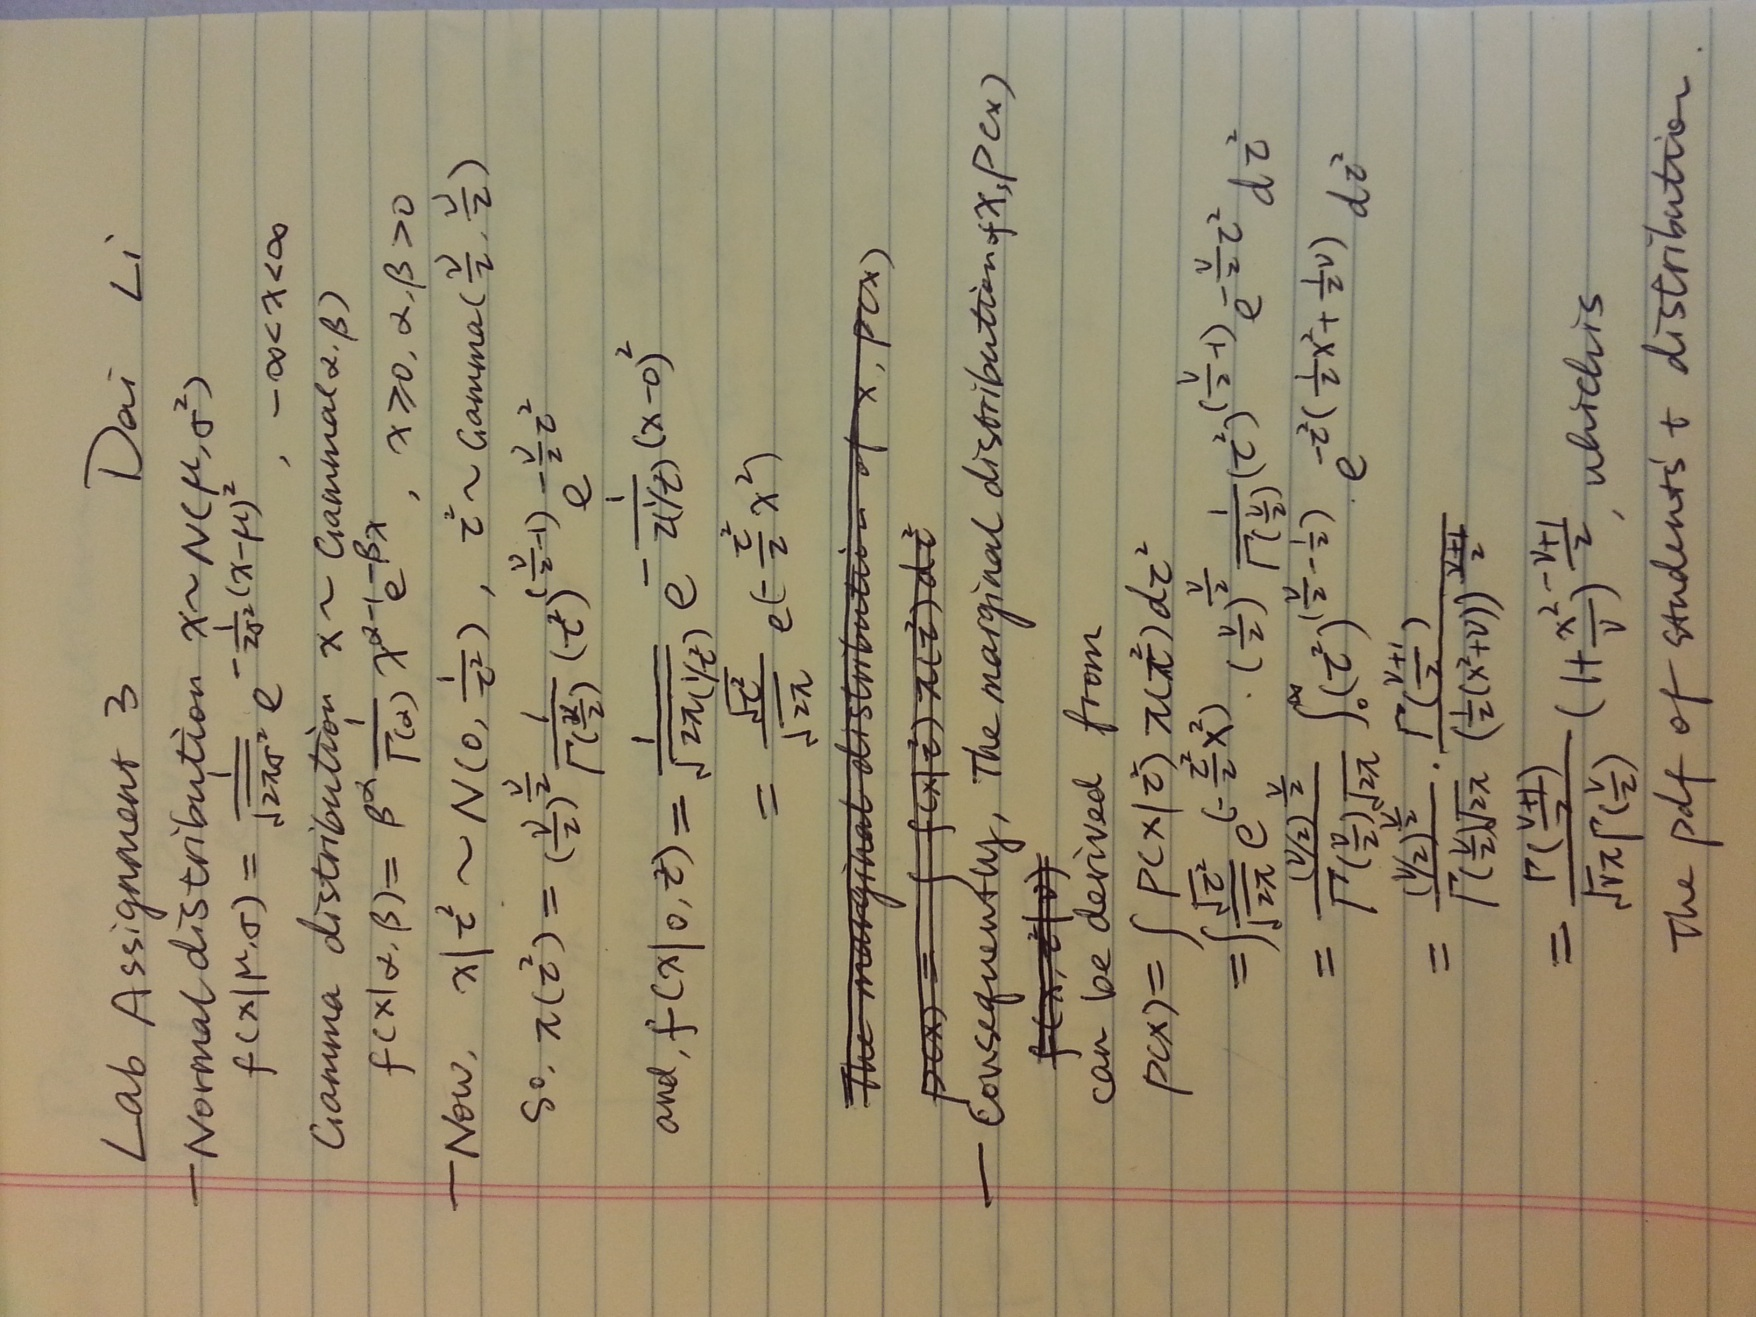 Lab Assignment 3 Dai Li
— Normal distribution x ~ N(μ, σ²)
f(x|μ,σ) = 1/√(2πσ²) e^{-1/(2σ²)(x-μ)²}, -∞<x<∞
Gamma distribution x ~ Gamma(α,β)
f(x|α,β) = β^α 1/Γ(α) x^{α-1} e^{-βx}, x≥0, α,β>0
— Now, x|τ² ~ N(0, 1/τ²), τ² ~ Gamma(ν/2, ν/2)
So, π(τ²) = (ν/2)^{ν/2} 1/Γ(ν/2) (τ²)^{(ν/2-1)} e^{-ν/2 τ²}
and, f(x|0,τ) = 1/√(2π(1/τ²)) e^{-1/(2(1/τ²))(x-0)²}
= √τ²/√2π e(-τ²/2 x²)
The marginal distribution of x, p(x)
p(x) = ∫ f(x|τ²) π(τ²) dτ²
— Consequently, The marginal distribution of x, p(x)
f(x,τ²|ν)
can be derived from
p(x) = ∫ p(x|τ²) π(τ²) dτ²
= ∫ √τ²/√2π e^{(-τ²/2 x²)} · (ν/2)^{ν/2} 1/Γ(ν/2) (τ²)^{(ν/2-1)} e^{-ν/2 τ²} dτ²
= (ν/2)^{ν/2}/(Γ(ν/2)√2π) ∫₀^∞ (τ²)^{(ν/2-1/2)} · e^{-τ²(1/2 x² + 1/2 ν)} dτ²
= (ν/2)^{ν/2}/(Γ(ν/2)√2π) · Γ((ν+1)/2)/(1/2(x²+ν))^{(ν+1)/2}
= Γ((ν+1)/2)/(√νπ Γ(ν/2)) (1+x²/ν)^{-(ν+1)/2}, which is
The pdf of student's t distribution.